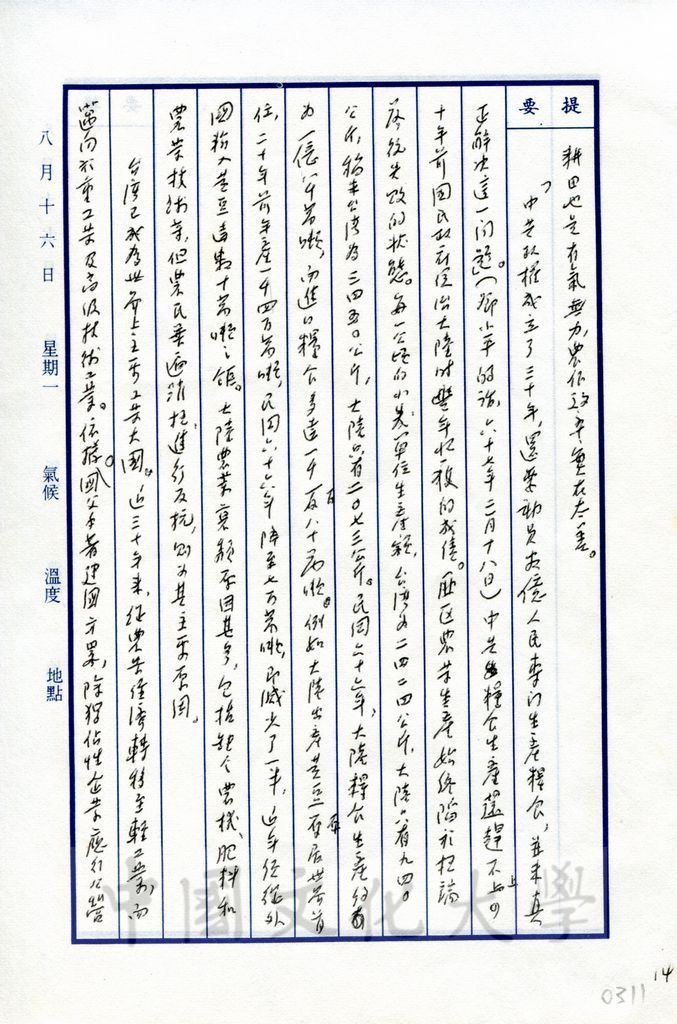 提要
耕田也是有氣無力,農作效率實在太差。
「中共政權成立了三十年,還要動員九億人民專門生產糧食,並未真
正解決這一問題。(鄧小平的話,六十七年三月十八日)中共糧食生產還趕不上
十年前國民政府統治大陸時豐年收穫的成績。匪區農業生產始終陷於
落後失敗的狀態。每一公頃的小麥單位生產額,台灣為二四二四公斤,大陸只有九四〇
公斤,稻米台灣為三四五〇公斤,大陸只有二〇七三公斤。民國六十六年,大陸糧食生產
為一億八千萬噸,而進口糧食多達一千一百八十萬噸。例如大陸出產黃豆原居世界首
位,二十年前年產一千四百萬噸,民國六十六年降至七百萬噸,即減少了一半,近年須從外
國輸入黃豆達數十萬噸之鉅。大陸農業衰頹原因甚多,包括缺乏農機、肥料和
農業技術等,但農民普遍消極進行反抗,則為其主要原因。
台灣已成為世界上主要工業大國。近三十年來,從農業經濟轉移至輕工業,而
邁向於重工業及高級技術工業。依據國父手著建國方略,除獨佔性企業應行公營
八月十六日 星期一 氣候 溫度 地點
中國文化大學
0311
14